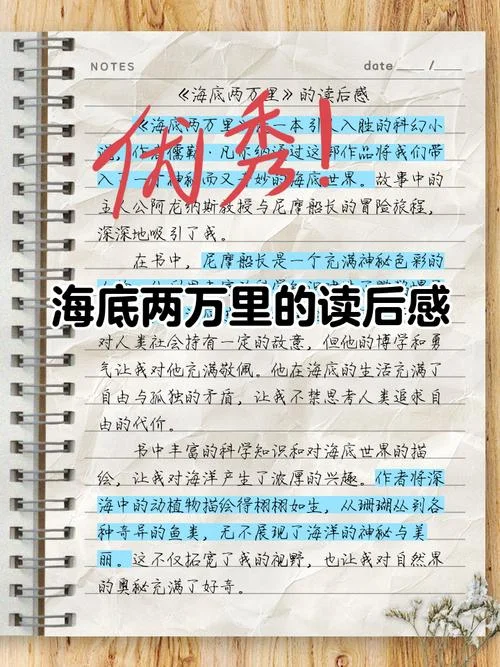 NOTES
date
《海底两万里》的读后感
优秀!
《海底两万里》是一本引人入胜的科幻小
说,作者儒勒·凡尔纳通过这部作品将我们带
入了一个神秘而又奇妙的海底世界。故事中的
主人公阿龙纳斯教授与尼摩船长的冒险旅程,
深深地吸引了我。
在书中,尼摩船长是一个充满神秘色彩的
海底两万里的读后感
对人类社会持有一定的敌意,但他的博学和勇
气让我对他充满敬佩。他在海底的生活充满了
自由与孤独的矛盾,让我不禁思考人类追求自
由的代价。
书中丰富的科学知识和对海底世界的描
绘,让我对海洋产生了浓厚的兴趣。作者将深
海中的动植物描绘得栩栩如生,从珊瑚丛到各
种奇异的鱼类,无不展现了海洋的神秘与美
丽。这不仅拓宽了我的视野,也让我对自然界
的奥秘充满了好奇。